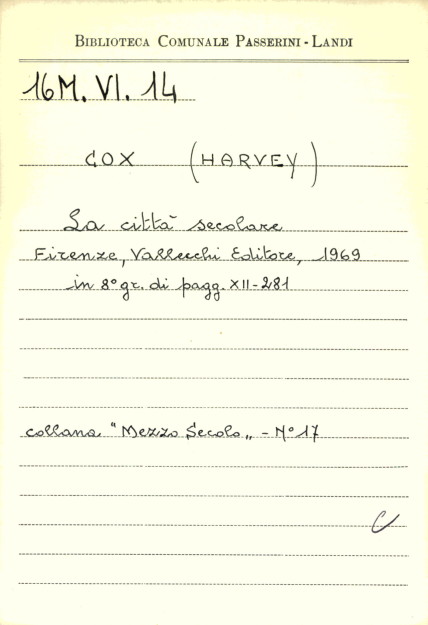 BIBLIOTECA COMUNALE PASSERINI - LANDI
16M. VI. 14
COX (HARVEY)
La città secolare
Firenze, Vallecchi Editore, 1969
in 8° gr. di pagg. XII-281
collana "Mezzo Secolo„ - N° 17
C